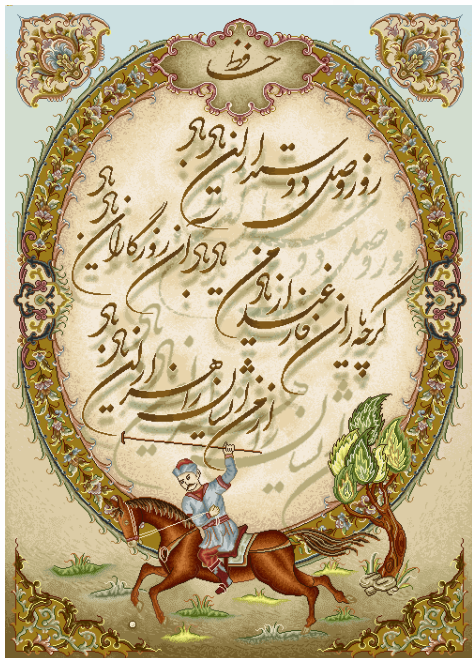 حافظ
روز وصل دوستداران یاد باد
یاد باد آن روزگاران یاد باد
گرچه یاران فارغند از یاد من
از من ایشان را هزاران یاد باد